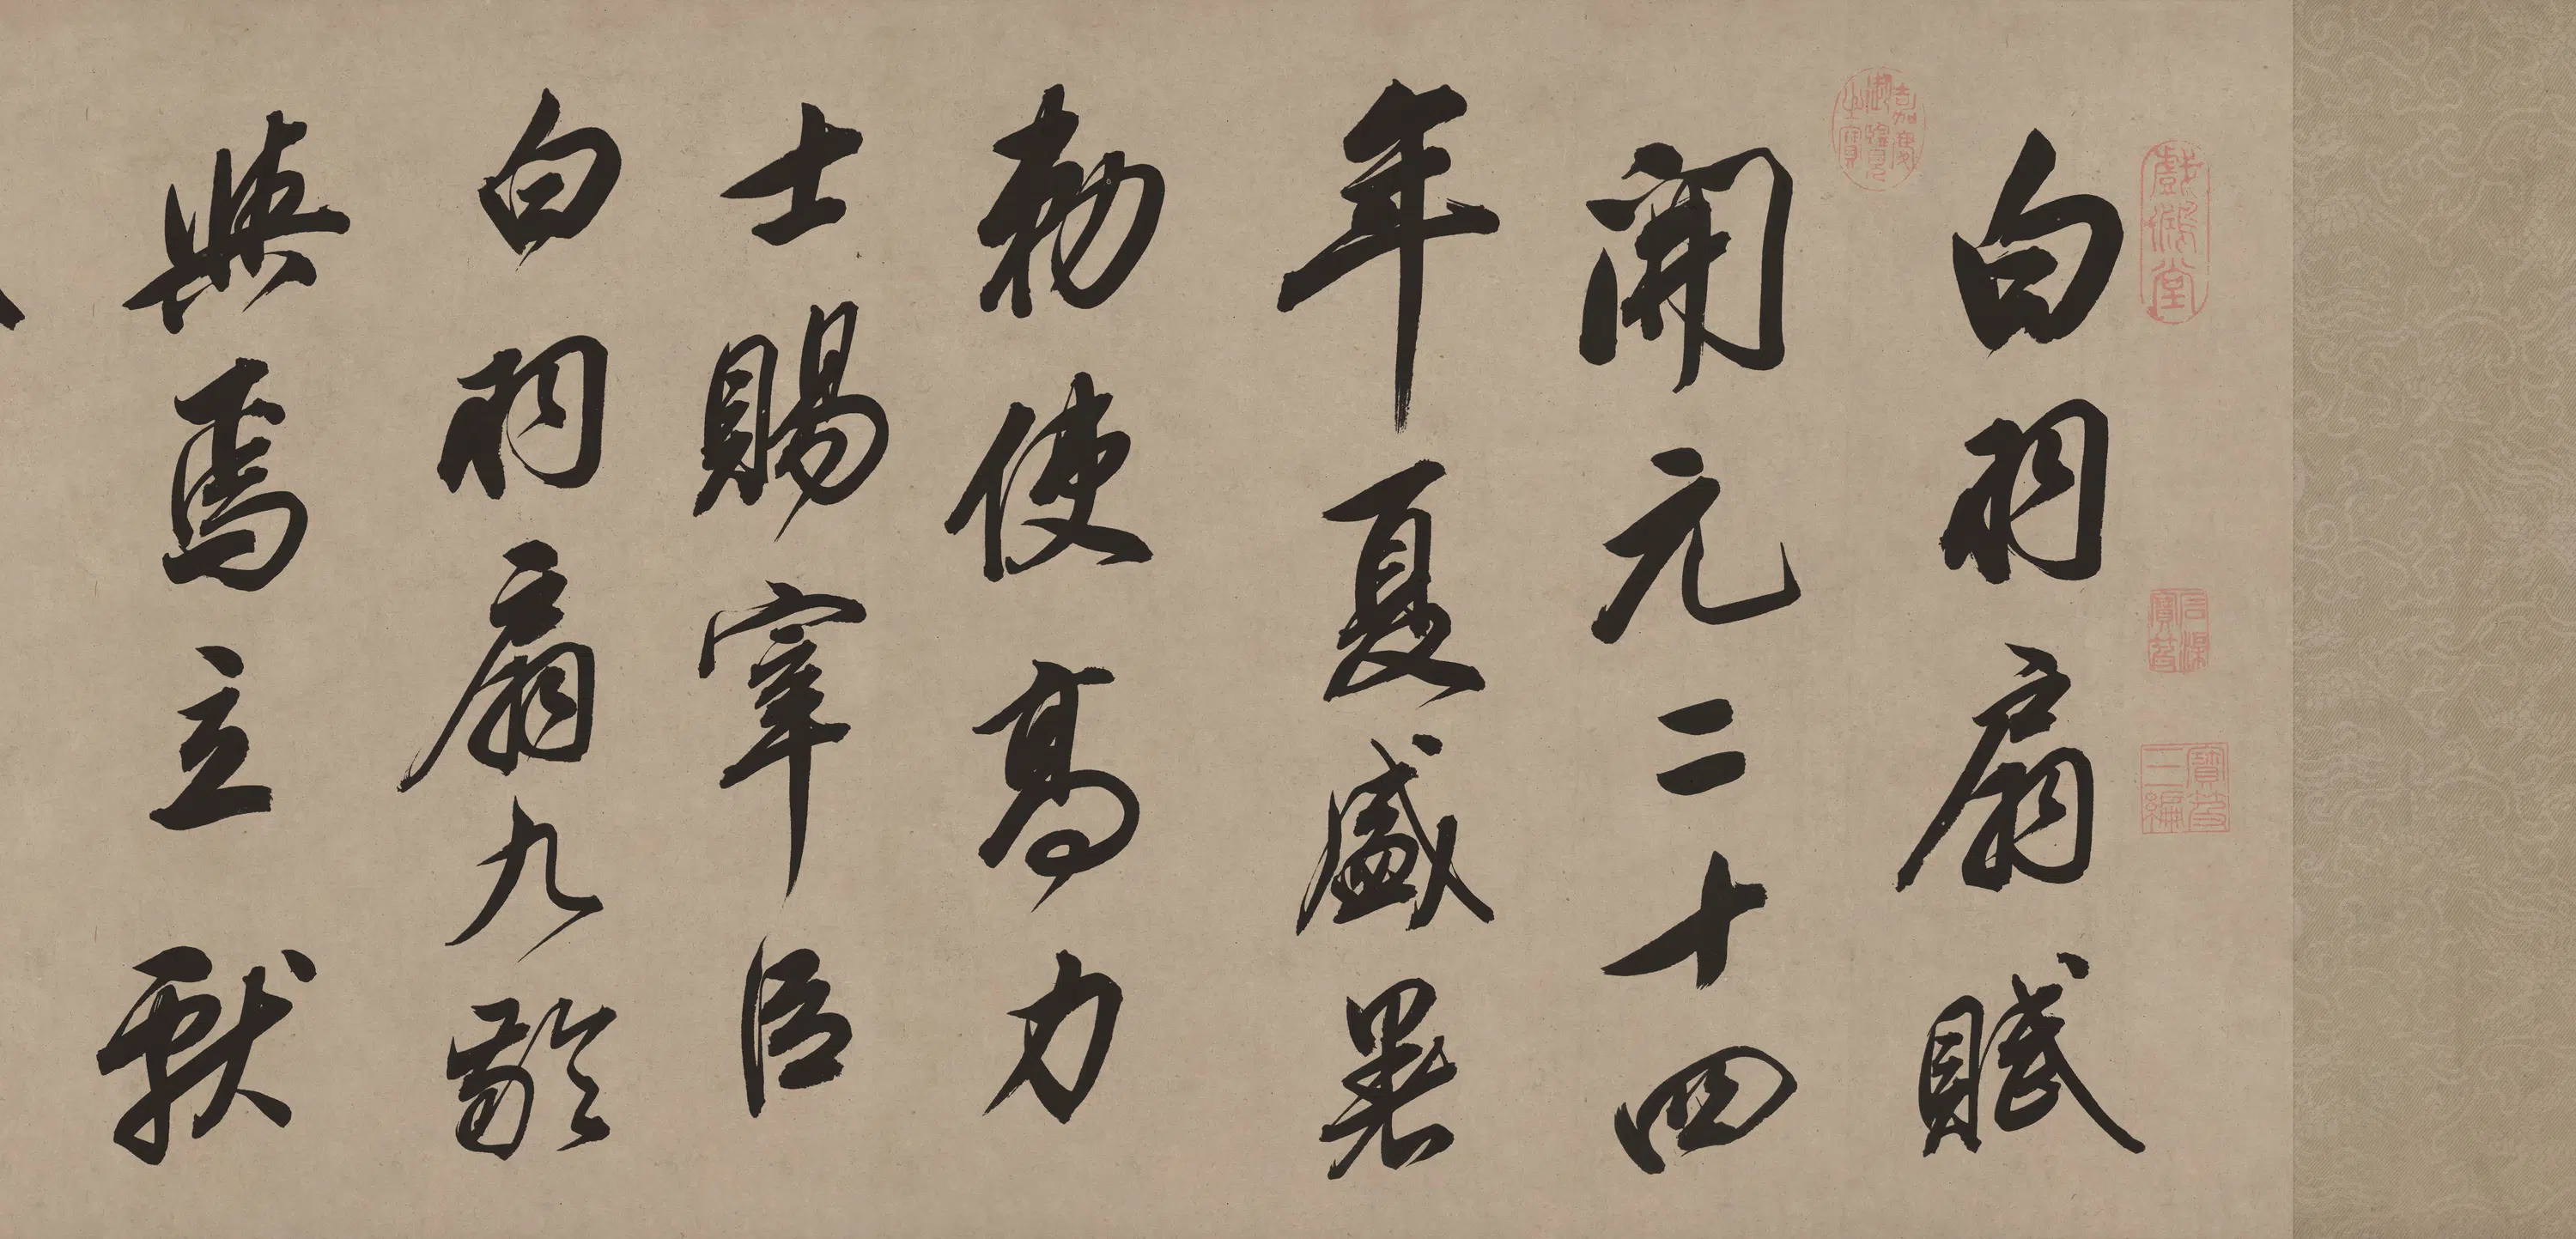 白羽扇賦
開元二十四
年夏盛暑
勑使高力
士賜宰臣
白羽扇九齡
與焉立獻
戲鴻堂
嘉慶御覽之寶
石渠寶笈
寶笈三編